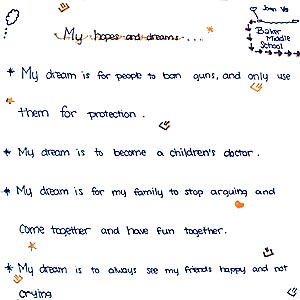 My hopes and dreams....
Baker
Middle
School
* My dream is for people to ban guns, and only use
them for protection.
* My dream is to become a children's doctor.
* My dream is for my family to stop arguing and
come together and have fun together.
* My dream is to always see my friends happy and not
crying